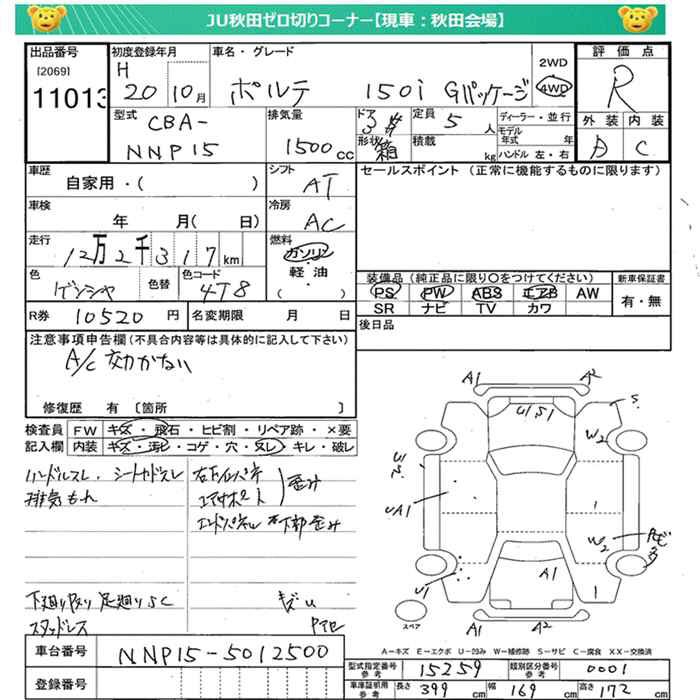 JU秋田ゼロ切りコーナー【現車：秋田会場】
出品番号 [2069] 11013
初度登録年月 H 20 10月
車名・グレード ポルテ 150i Gパッケージ
2WD 4WD
評価点 R
型式 CBA-NNP15
排気量 1500cc
ドア 3 形状 箱
定員 5人
積載 kg
ディーラー・並行
モデル年式 年
ハンドル 左・右
外装 内装 C
車歴 自家用・( )
シフト AT
セールスポイント (正常に機能するものに限ります)
車検 年 月( 日)
冷房 AC
走行 12万2千317km
燃料 ガソリン・軽油・( )
色 ゲンシャ 色替 色コード 4T8
装備品 (純正品に限り○をつけてください)
新車保証書 有・無
PS PW ABS エアB AW
SR ナビ TV カワ
R券 10520円 名変期限 月 日
後日品
注意事項申告欄(不具合内容等は具体的に記入して下さい)
A/C 効かない
修復歴 有 〔箇所 〕
検査員記入欄
FW キズ・飛石・ヒビ割・リペア跡・×要
内装 キズ・汚レ・コゲ・穴・スレ・キレ・破レ
ハンドルスレ、シートヤケスレ
排気もれ
右下インパネ
エアサポート 歪み
エンドパネル 右下部歪み
下廻り サビ 足廻り SC
スタッドレス
キズU
A1 A2
U1 S1
S
W2
U1
UA1
W2
U1
A1
A1 A2
スペア
A-キズ E-エクボ U-凹み W-補修跡 S-サビ C-腐食 XX-交換済
車台番号 NNP15-5012500
登録番号
型式指定番号 参考 15259
類別区分番号 参考 0001
車庫証明用 参考 長さ 399cm 幅 169cm 高さ 172cm